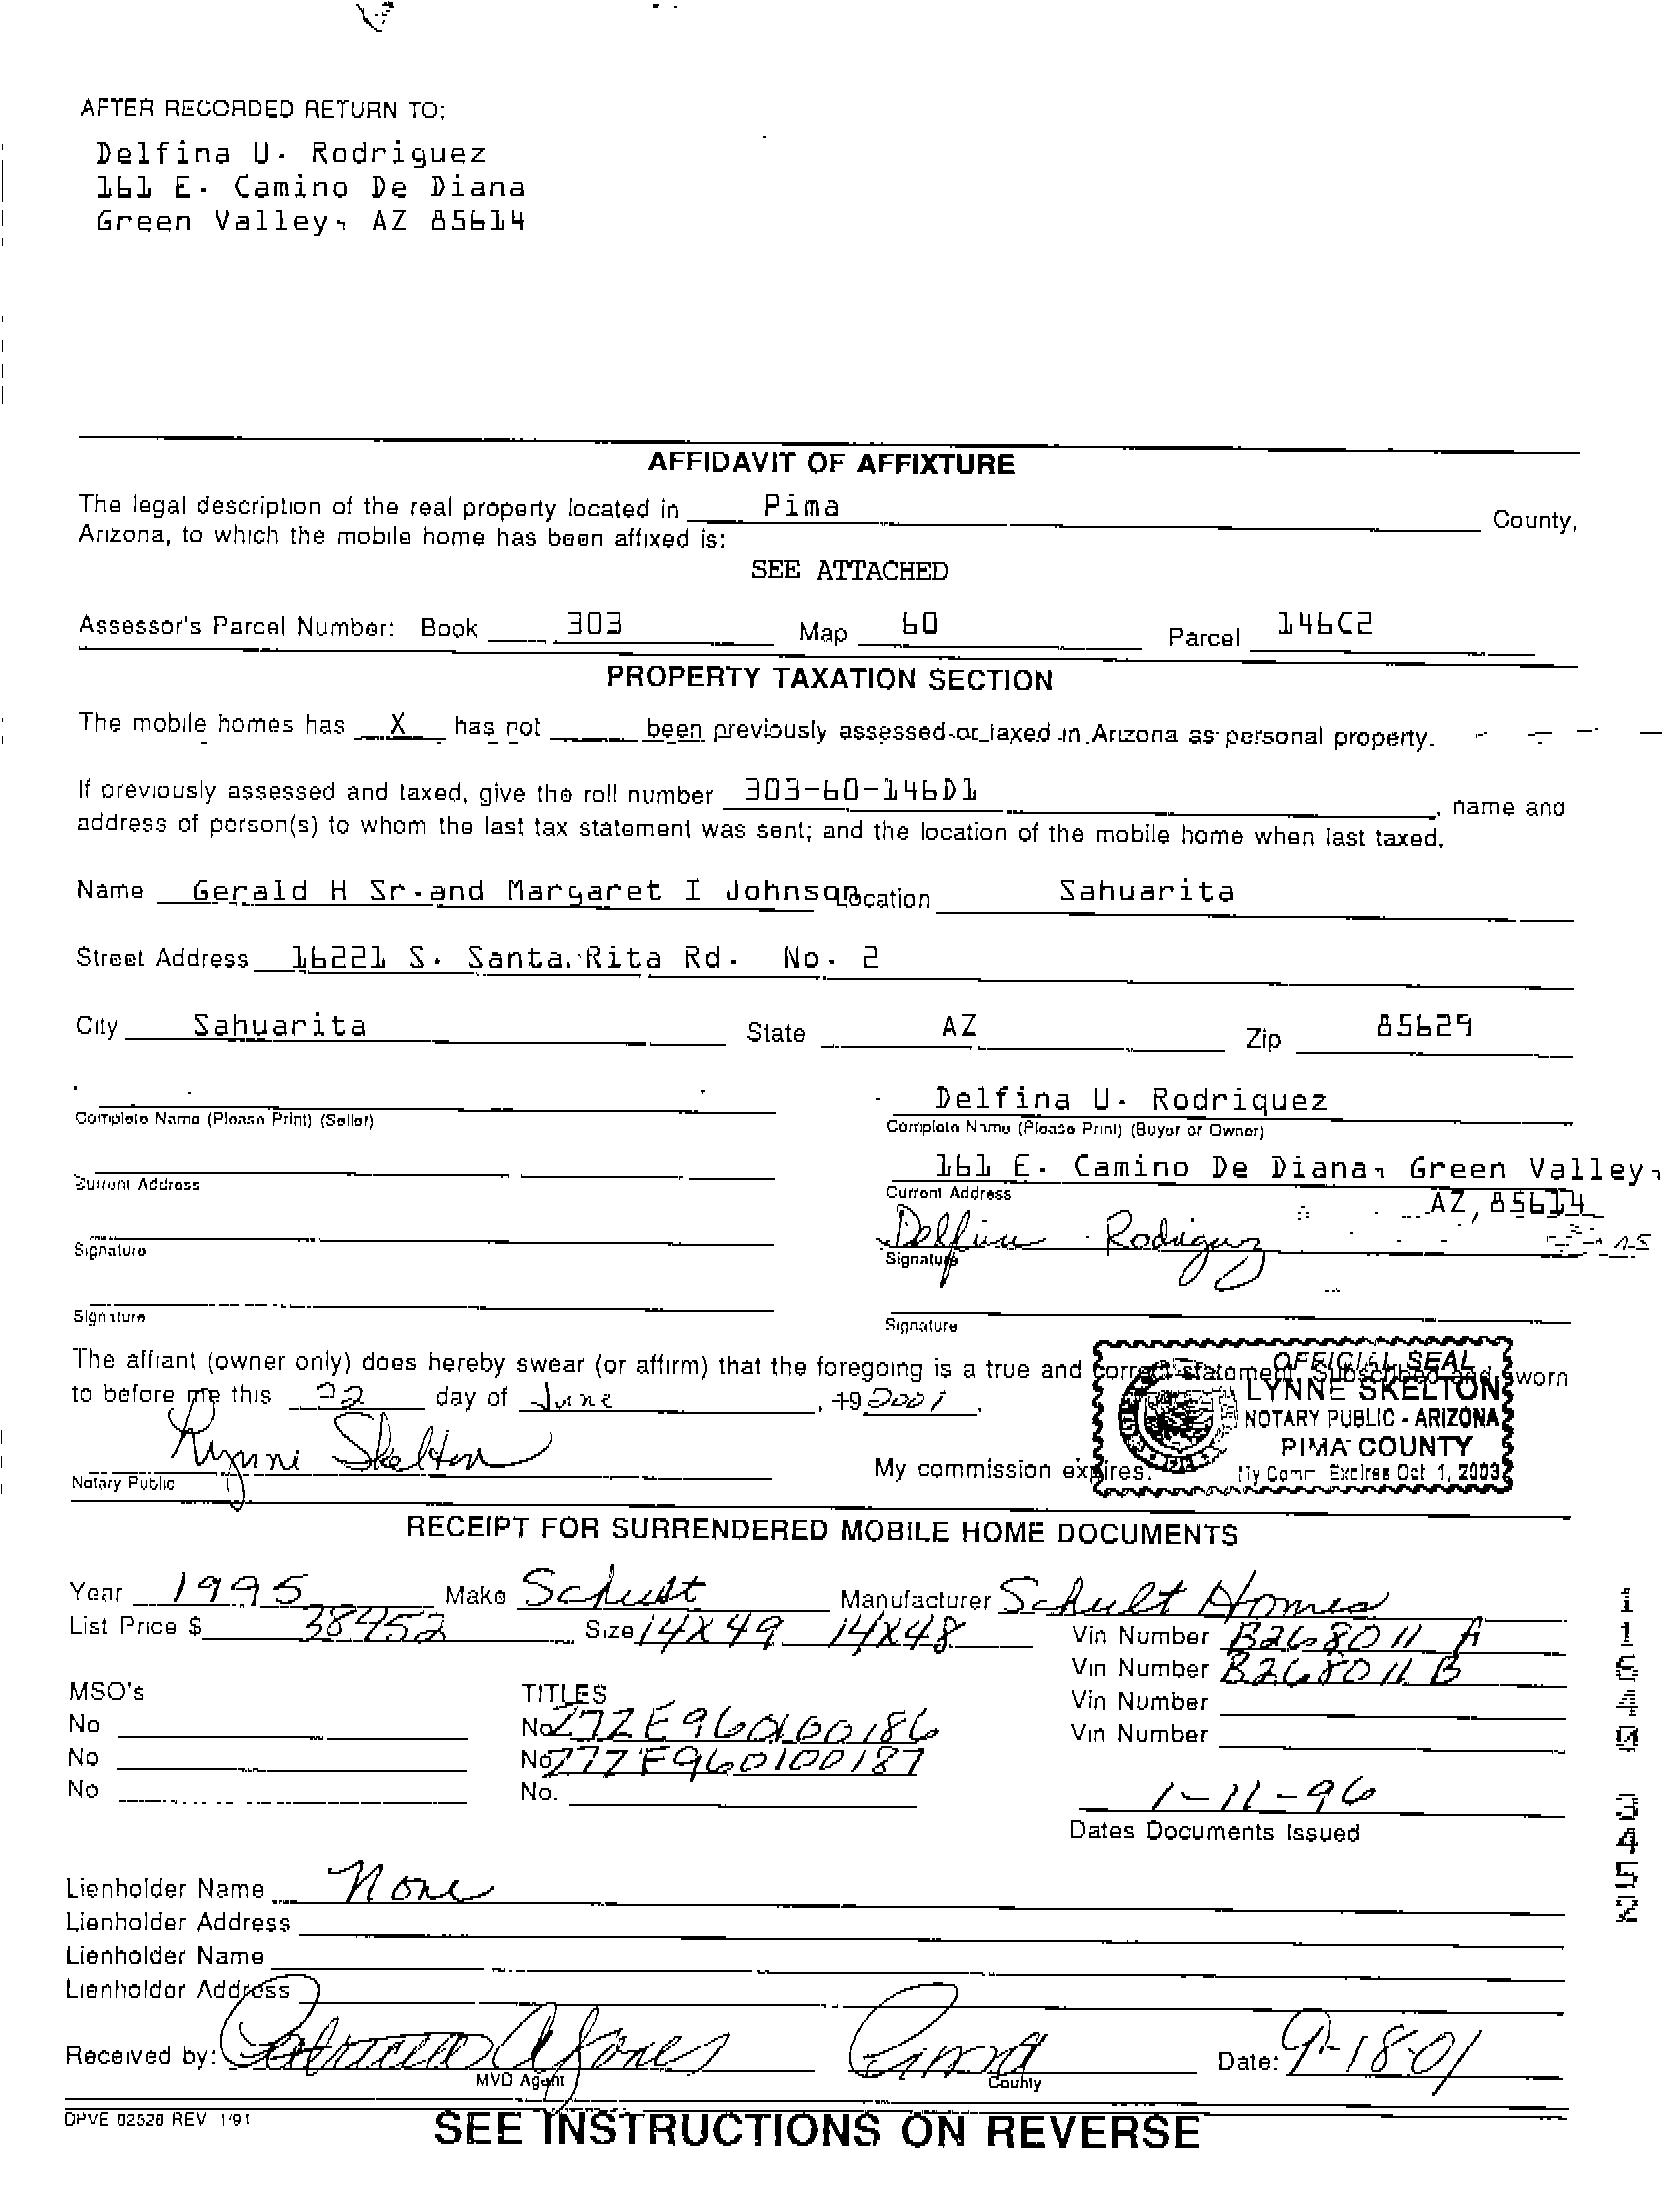 AFTER RECORDED RETURN TO:
Delfina U. Rodriguez
161 E. Camino De Diana
Green Valley, AZ 85614
AFFIDAVIT OF AFFIXTURE
The legal description of the real property located in Pima County,
Arizona, to which the mobile home has been affixed is:
SEE ATTACHED
Assessor's Parcel Number: Book 303 Map 60 Parcel 146C2
PROPERTY TAXATION SECTION
The mobile homes has X has not been previously assessed or taxed in Arizona as personal property.
If previously assessed and taxed, give the roll number 303-60-146D1, name and
address of person(s) to whom the last tax statement was sent; and the location of the mobile home when last taxed.
Name Gerald H Sr.and Margaret I Johnson Location Sahuarita
Street Address 16221 S. Santa Rita Rd. No. 2
City Sahuarita State AZ Zip 85629
Delfina U. Rodriquez
Complete Name (Please Print) (Seller) Complete Name (Please Print) (Buyer or Owner)
161 E. Camino De Diana, Green Valley,
Current Address Current Address AZ, 85614
Delfina Rodriguez
Signature Signature
Signature Signature
The affiant (owner only) does hereby swear (or affirm) that the foregoing is a true and correct statement. Subscribed and sworn
to before me this 22 day of June, 19 2001.
OFFICIAL SEAL
LYNNE SKELTON
NOTARY PUBLIC - ARIZONA
PIMA COUNTY
My Comm. Expires Oct 1, 2003
Lynne Skelton
Notary Public My commission expires:
RECEIPT FOR SURRENDERED MOBILE HOME DOCUMENTS
Year 1995 Make Schult Manufacturer Schult Homes
List Price $ 38952 Size 14X49 14X48 Vin Number B268011 A
Vin Number B268011 B
MSO's TITLES Vin Number
No No 277E960100186 Vin Number
No No 277F960100187
No No. 1-11-96
Dates Documents Issued
Lienholder Name None
Lienholder Address
Lienholder Name
Lienholder Address
Received by: Patricia A Jones Pima Date: 9-18-01
MVD Agent County
DPVE 02528 REV 1/91
SEE INSTRUCTIONS ON REVERSE